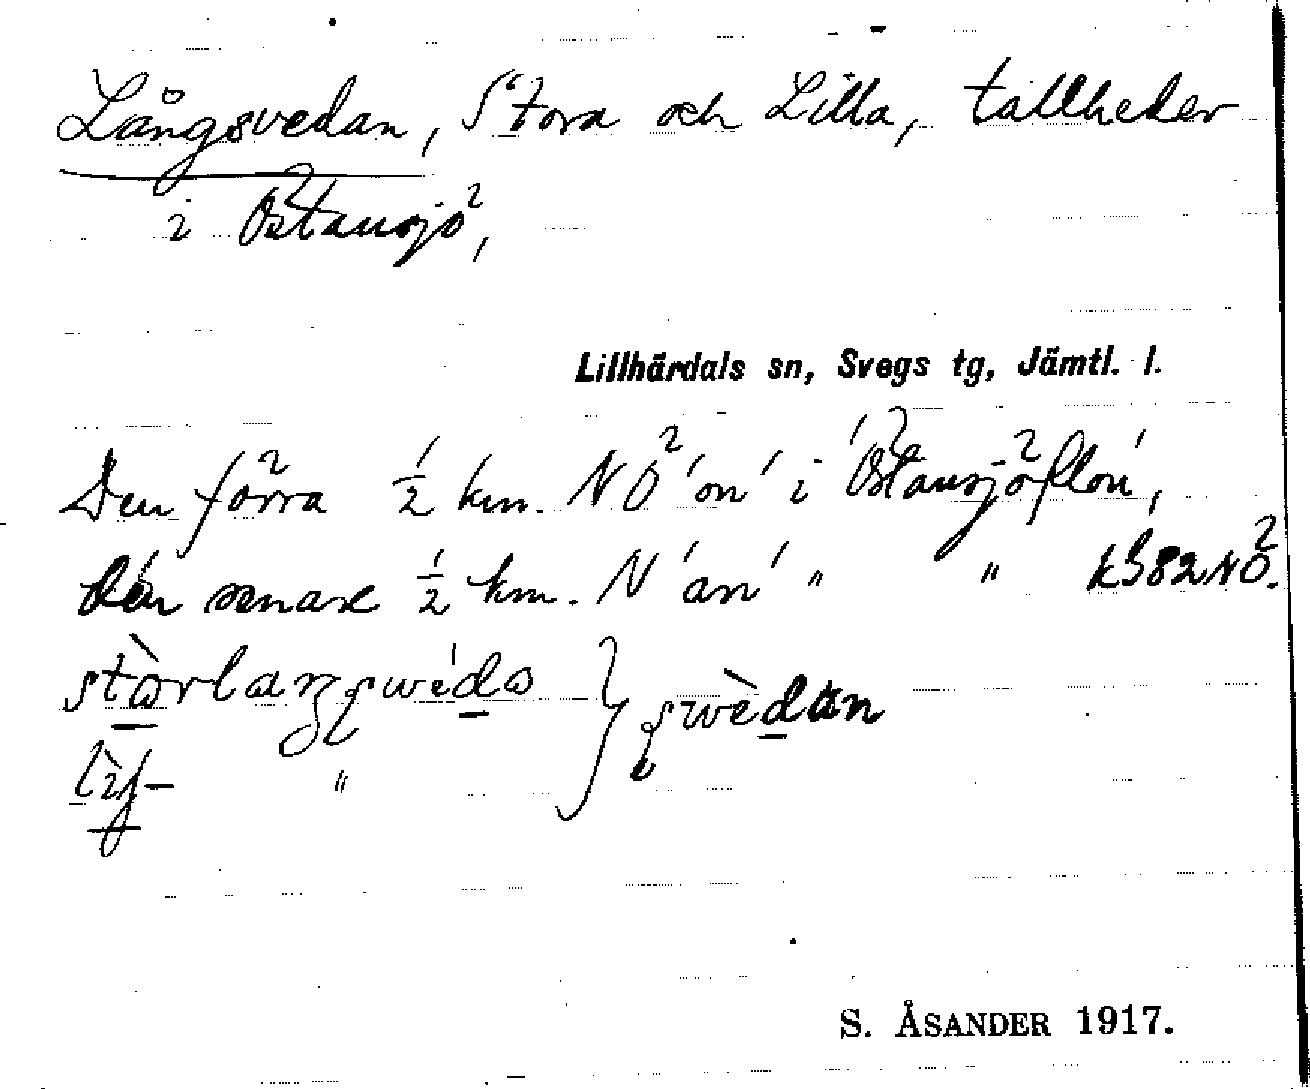 Långsvedan, Stora och Lilla, tallheder
i Östansjö,
Lillhärdals sn, Svegs tg, Jämtl. l.
Den förra ½ km. NÖ 'on' i 'Östansjöflon',
den senare ½ km. N 'an' " " kB 82 NÖ.
"
S. ÅSANDER 1917.